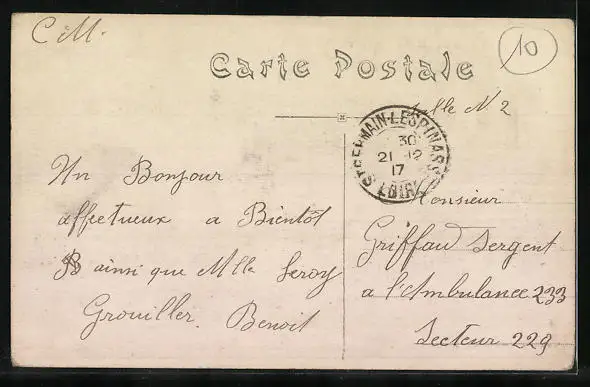 C.M.
10
Carte Postale
Salle N 2
ST GERMAIN-LESPINASSE
30
21 -12
17
LOIRE
Un Bonjour
affectueux a Bientôt
B ainsi que Mlle Leroy
Grouiller. Benoit
Monsieur
Griffau Sergent
a l'Ambulance 233
Secteur 229